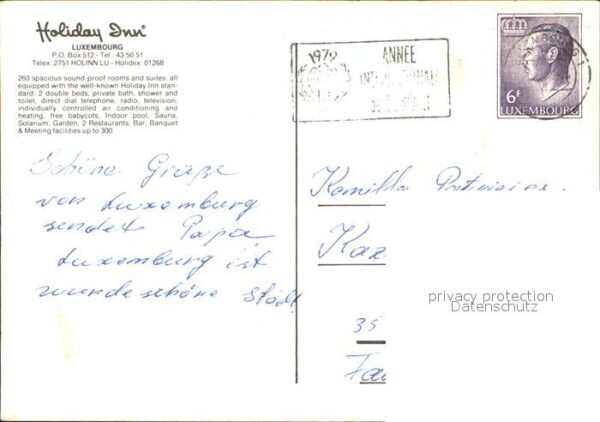 Holiday Inn®
LUXEMBOURG
P.O. Box 512 - Tel.: 43 50 51
Telex: 2751 HOLINN LU - Holidex: 01268
260 spacious sound-proof rooms and suites, all
equipped with the well-known Holiday Inn stan-
dard: 2 double beds, private bath, shower and
toilet, direct dial telephone, radio, television,
individually controlled air conditioning and
heating, free babycots. Indoor pool, Sauna,
Solarium, Garden, 2 Restaurants, Bar, Banquet
& Meeting facilities up to 300.
Schöne Grüße
von Luxemburg
sendet Papa
Luxemburg ist
wundeschöne Stadt
1979
ANNEE
INTERNATIONALE
DE L'ENFANT
6F
LUXEMBOURG
Kamilla
Kaz
35
privacy protection
Datenschutz